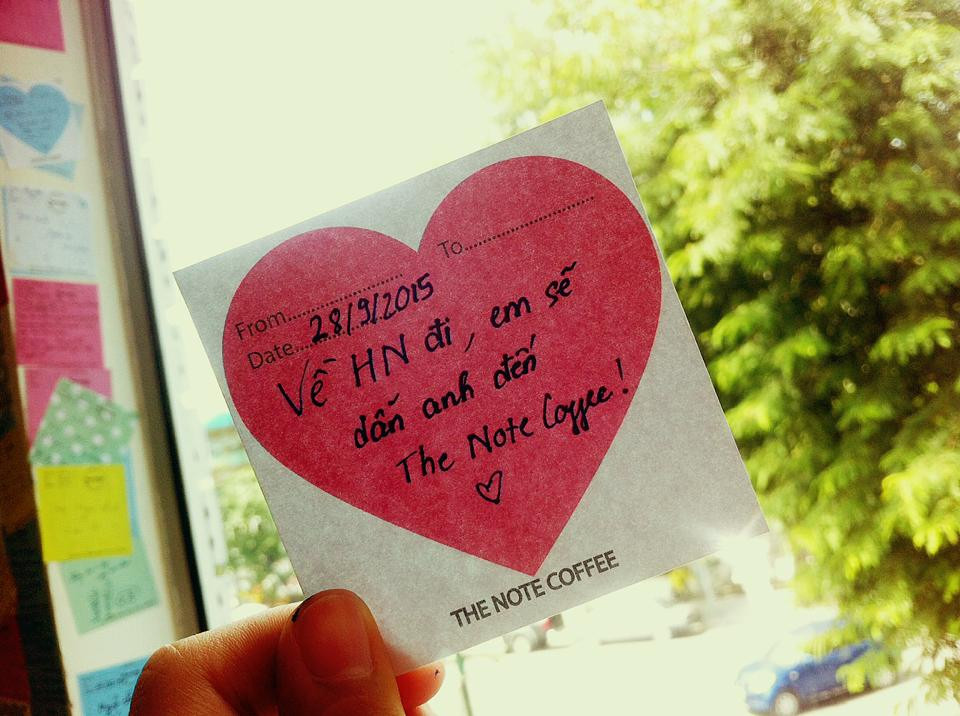 From........................
To........................
Date........................ 28/9/2015
Về HN đi, em sẽ
dẫn anh đến
The Note Coffee!
THE NOTE COFFEE